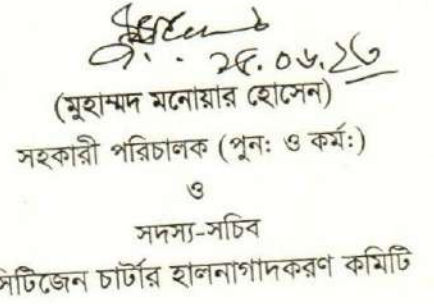 ২৫.০৬.২৩
(মুহাম্মদ মনোয়ার হোসেন)
সহকারী পরিচালক (পুন: ও কর্ম:)
ও
সদস্য-সচিব
সিটিজেন চার্টার হালনাগাদকরণ কমিটি